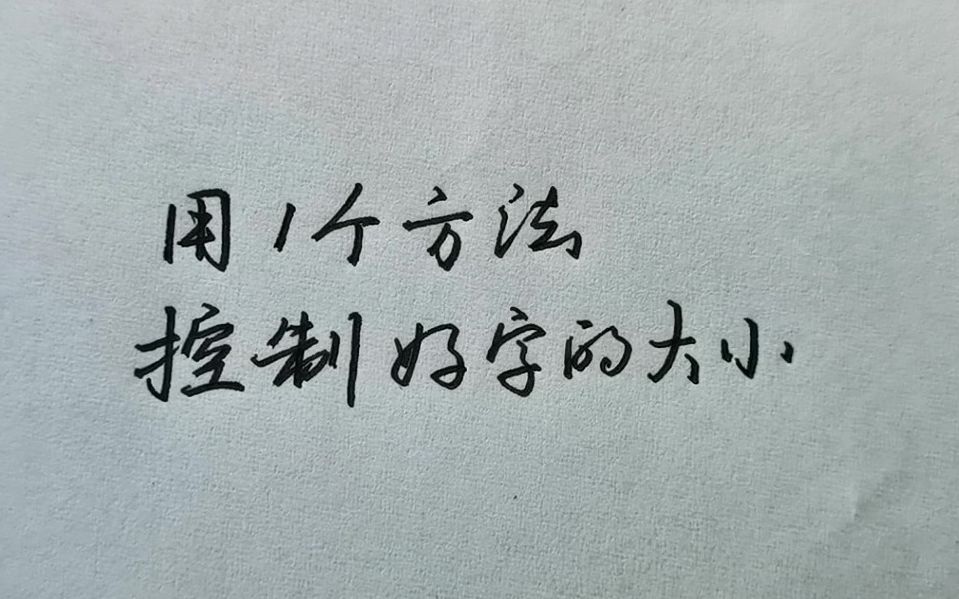 用1个方法
控制好字的大小